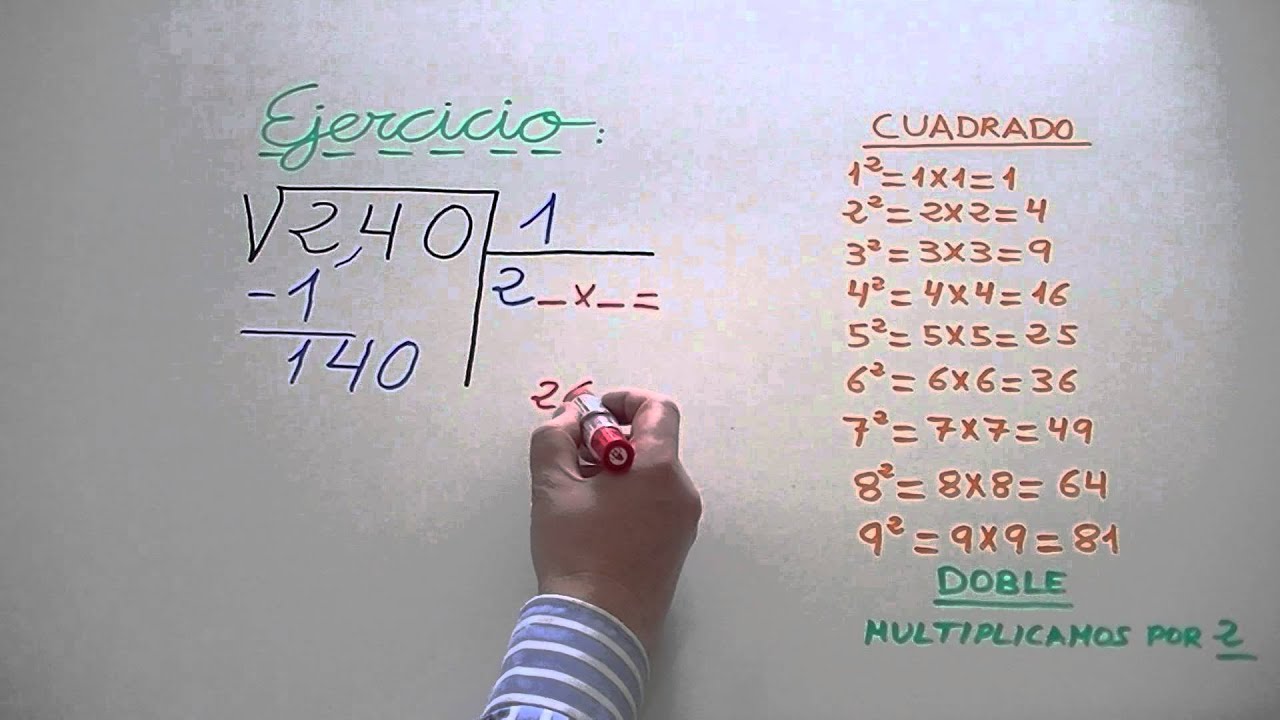 Ejercicio:
√2,40 1
-1 2_×_=
140
26
CUADRADO
1²=1×1=1
2²=2×2=4
3²=3×3=9
4²=4×4=16
5²=5×5=25
6²=6×6=36
7²=7×7=49
8²=8×8=64
9²=9×9=81
DOBLE
MULTIPLICAMOS POR 2